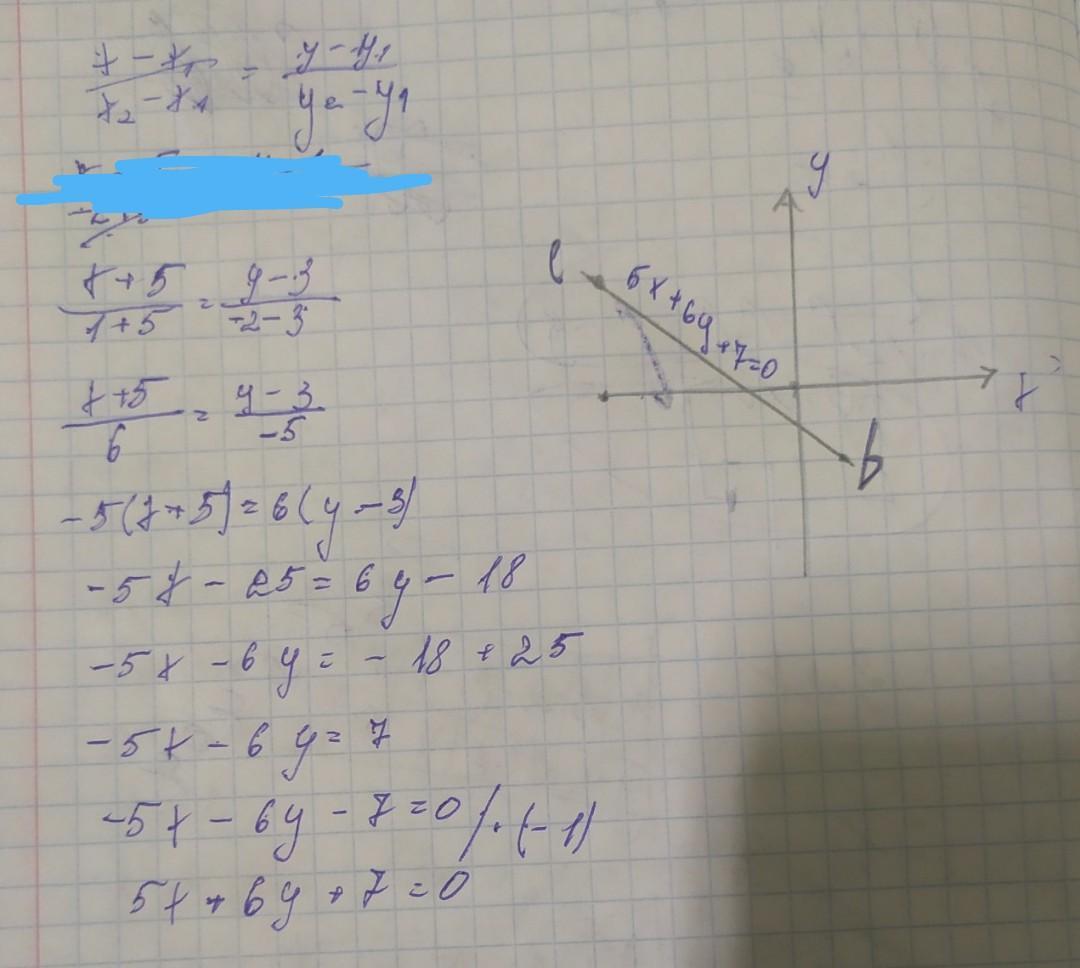 x - x₁ / x₂ - x₁ = y - y₁ / y₂ - y₁
x + 5 / 1 + 5 = y - 3 / -2 - 3
x + 5 / 6 = y - 3 / -5
-5(x + 5) = 6(y - 3)
-5x - 25 = 6y - 18
-5x - 6y = -18 + 25
-5x - 6y = 7
-5x - 6y - 7 = 0 / · (-1)
5x + 6y + 7 = 0
y
l
5x + 6y + 7 = 0
x
b